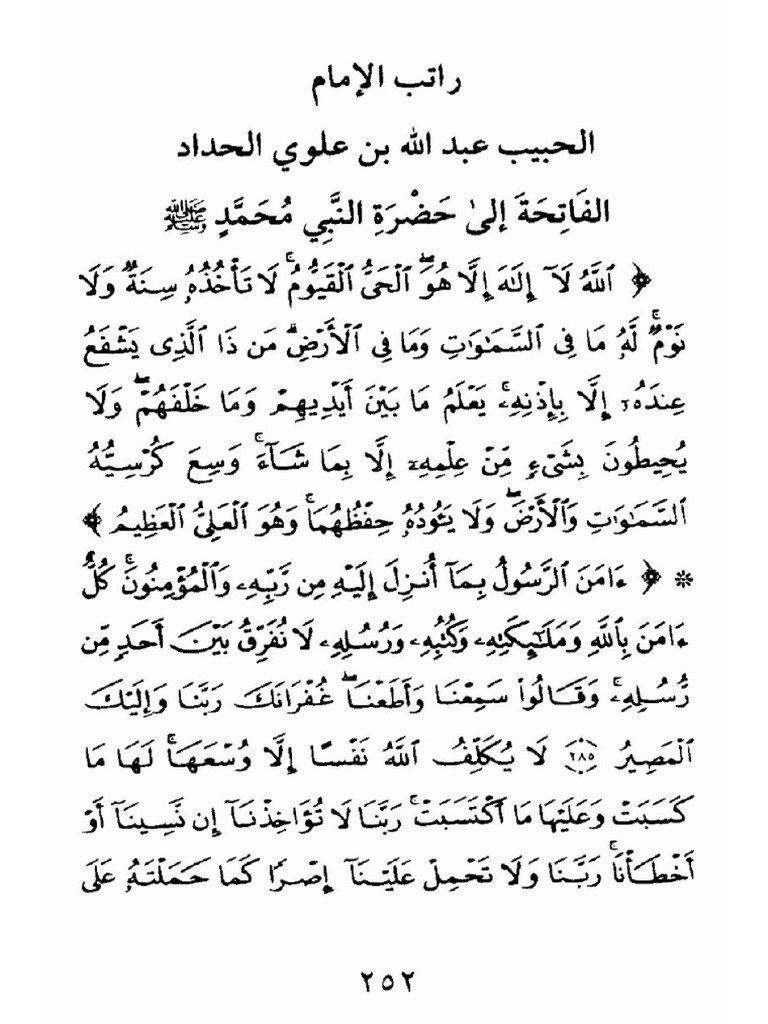 راتب الإمام
الحبيب عبد الله بن علوي الحداد
الفَاتِحَةَ إلىٰ حَضْرَةِ النَّبِي مُحَمَّدٍ ﷺ
﴿ ٱللَّهُ لَآ إِلَٰهَ إِلَّا هُوَ ۖ ٱلْحَىُّ ٱلْقَيُّومُ ۚ لَا تَأْخُذُهُۥ سِنَةٌ وَلَا
نَوْمٌ ۚ لَّهُۥ مَا فِى ٱلسَّمَٰوَٰتِ وَمَا فِى ٱلْأَرْضِ ۗ مَن ذَا ٱلَّذِى يَشْفَعُ
عِندَهُۥٓ إِلَّا بِإِذْنِهِۦ ۚ يَعْلَمُ مَا بَيْنَ أَيْدِيهِمْ وَمَا خَلْفَهُمْ ۖ وَلَا
يُحِيطُونَ بِشَىْءٍ مِّنْ عِلْمِهِۦٓ إِلَّا بِمَا شَآءَ ۚ وَسِعَ كُرْسِيُّهُ
ٱلسَّمَٰوَٰتِ وَٱلْأَرْضَ ۖ وَلَا يَـُٔودُهُۥ حِفْظُهُمَا ۚ وَهُوَ ٱلْعَلِىُّ ٱلْعَظِيمُ ﴾
* ﴿ ءَامَنَ ٱلرَّسُولُ بِمَآ أُنزِلَ إِلَيْهِ مِن رَّبِّهِۦ وَٱلْمُؤْمِنُونَ ۚ كُلٌّ
ءَامَنَ بِٱللَّهِ وَمَلَٰٓئِكَتِهِۦ وَكُتُبِهِۦ وَرُسُلِهِۦ لَا نُفَرِّقُ بَيْنَ أَحَدٍ مِّن
رُّسُلِهِۦ ۚ وَقَالُوا۟ سَمِعْنَا وَأَطَعْنَا ۖ غُفْرَانَكَ رَبَّنَا وَإِلَيْكَ
ٱلْمَصِيرُ ٢٨٥ لَا يُكَلِّفُ ٱللَّهُ نَفْسًا إِلَّا وُسْعَهَا ۚ لَهَا مَا
كَسَبَتْ وَعَلَيْهَا مَا ٱكْتَسَبَتْ ۗ رَبَّنَا لَا تُؤَاخِذْنَآ إِن نَّسِينَآ أَوْ
أَخْطَأْنَا ۚ رَبَّنَا وَلَا تَحْمِلْ عَلَيْنَآ إِصْرًا كَمَا حَمَلْتَهُۥ عَلَى
٢٥٢